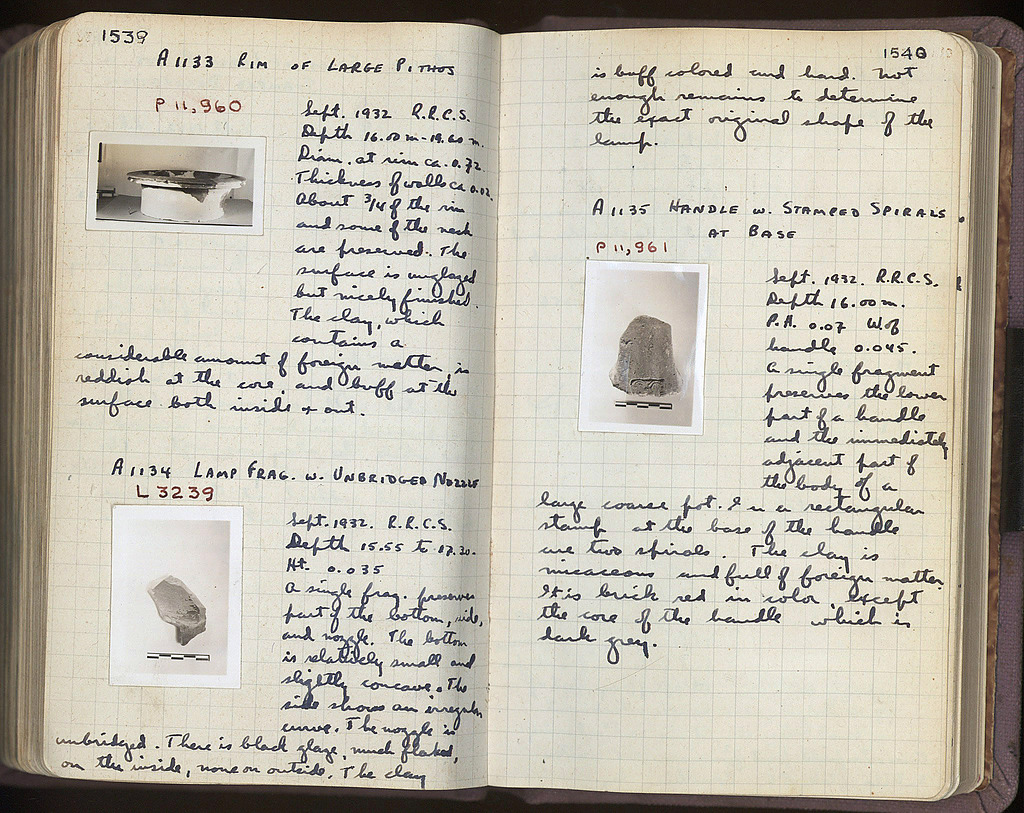 1539
A 1133 RIM OF LARGE PITHOS
P 11,960
Sept. 1932 R.R.C.S.
Depth 16.00 m - 19.60 m.
Diam. at rim ca. 0.72
Thickness of walls ca 0.02.
About 3/4 of the rim
and some of the neck
are preserved. The
surface is unglazed
but nicely finished.
The clay, which
contains a
considerable amount of foreign matter, is
reddish at the core, and buff at the
surface both inside + out.
A 1134 LAMP FRAG. W. UNBRIDGED NOZZLE
L 3239
Sept. 1932. R.R.C.S.
Depth 15.55 to 17.30.
Ht. 0.035
A single frag. preserves
part of the bottom, side,
and nozzle. The bottom
is relatively small and
slightly concave. The
side shows an irregular
curve. The nozzle is
unbridged. There is black glaze, much flaked,
on the inside, none on outside. The clay
1540
is buff colored and hard. Not
enough remains to determine
the exact original shape of the
lamp.
A 1135 HANDLE W. STAMPED SPIRALS
AT BASE
P 11,961
Sept. 1932. R.R.C.S.
Depth 16.00 m.
P.H. 0.07 W. of
handle 0.045.
A single fragment
preserves the lower
part of a handle
and the immediately
adjacent part of
the body of a
large coarse pot. In a rectangular
stamp at the base of the handle
are two spirals. The clay is
micaceous and full of foreign matter.
It is brick red in color, except
the core of the handle which is
dark grey.